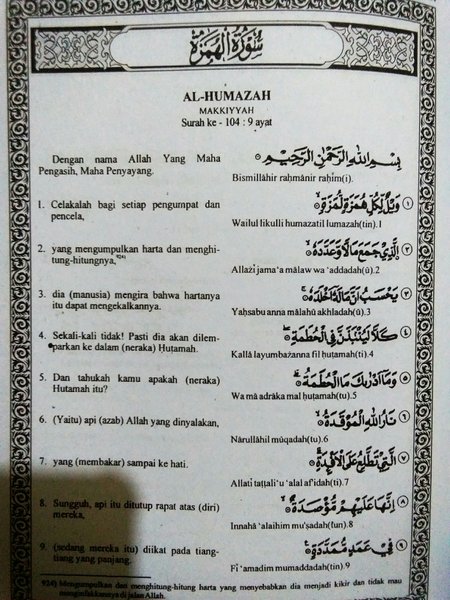 سورة الهمزة
AL-HUMAZAH
MAKKIYYAH
Surah ke - 104 : 9 ayat
Dengan nama Allah Yang Maha
Pengasih, Maha Penyayang.
بِسْمِ اللّٰهِ الرَّحْمٰنِ الرَّحِيْمِ
Bismillāhir raḥmānir raḥīm(i).
1. Celakalah bagi setiap pengumpat dan
pencela,
وَيْلٌ لِّكُلِّ هُمَزَةٍ لُّمَزَةٍۙ ١
Wailul likulli humazatil lumazah(tin).1
2. yang mengumpulkan harta dan menghi-
tung-hitungnya,924)
اَلَّذِيْ جَمَعَ مَالًا وَّعَدَّدَهٗۙ ٢
Allażī jama‘a mālaw wa ‘addadah(ū).2
3. dia (manusia) mengira bahwa hartanya
itu dapat mengekalkannya.
يَحْسَبُ اَنَّ مَالَهٗٓ اَخْلَدَهٗۚ ٣
Yaḥsabu anna mālahū akhladah(ū).3
4. Sekali-kali tidak! Pasti dia akan dilem-
parkan ke dalam (neraka) Ḥuṭamah.
كَلَّا لَيُنْۢبَذَنَّ فِى الْحُطَمَةِۖ ٤
Kallā layumbażanna fil ḥuṭamah(ti).4
5. Dan tahukah kamu apakah (neraka)
Hutamah itu?
وَمَآ اَدْرٰىكَ مَا الْحُطَمَةُۗ ٥
Wa mā adrāka mal ḥuṭamah(tu).5
6. (Yaitu) api (azab) Allah yang dinyalakan,
نَارُ اللّٰهِ الْمُوْقَدَةُۙ ٦
Nārullāhil mūqadah(tu).6
7. yang (membakar) sampai ke hati.
الَّتِيْ تَطَّلِعُ عَلَى الْاَفْـِٕدَةِۗ ٧
Allatī taṭṭali‘u ‘alal af'idah(ti).7
8. Sungguh, api itu ditutup rapat atas (diri)
mereka,
اِنَّهَا عَلَيْهِمْ مُّؤْصَدَةٌۙ ٨
Innahā ‘alaihim mu'ṣadah(tun).8
9. (sedang mereka itu) diikat pada tiang-
tiang yang panjang.
فِيْ عَمَدٍ مُّمَدَّدَةٍ ٩
Fī ‘amadim mumaddadah(tin).9
924) Mengumpulkan dan menghitung-hitung harta yang menyebabkan dia menjadi kikir dan tidak mau
menginfakkannya di jalan Allah.